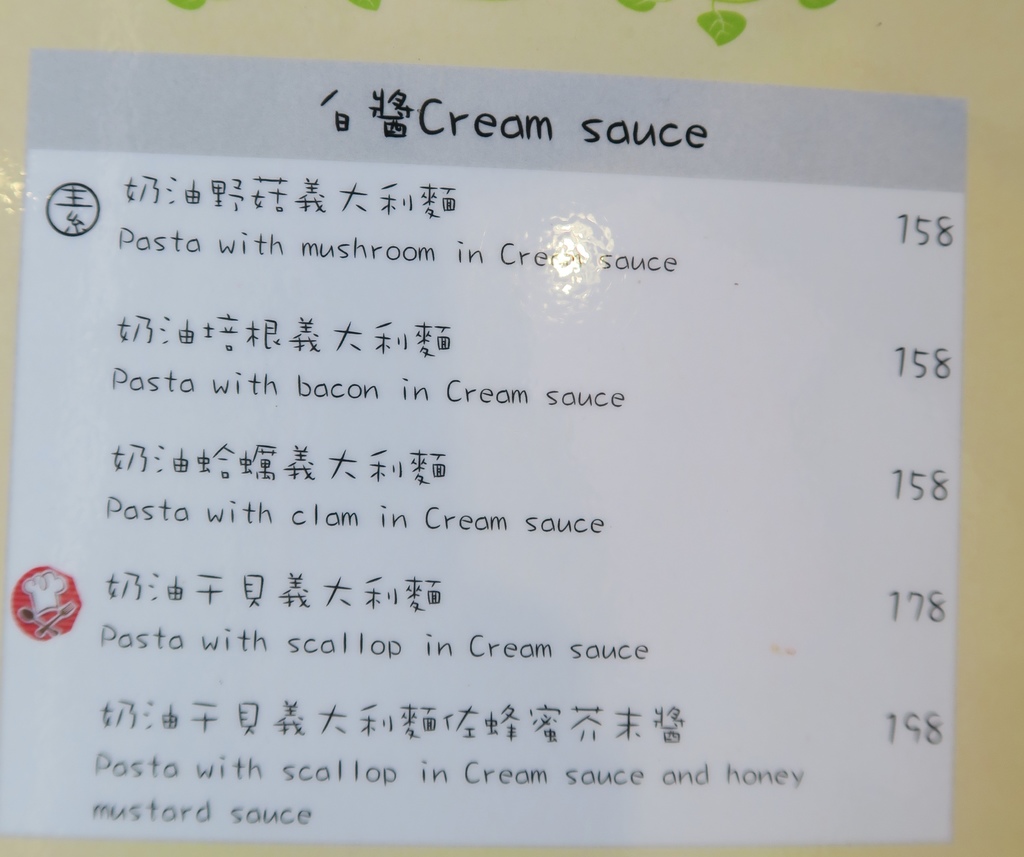 白醬Cream sauce
素
奶油野菇義大利麵
158
Pasta with mushroom in Cream sauce
奶油培根義大利麵
158
Pasta with bacon in Cream sauce
奶油蛤蠣義大利麵
158
Pasta with clam in Cream sauce
奶油干貝義大利麵
178
Pasta with scallop in Cream sauce
奶油干貝義大利麵佐蜂蜜芥末醬
198
Pasta with scallop in Cream sauce and honey
mustard sauce